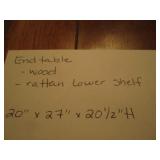 End table
- wood
- rattan Lower Shelf
20" x 27" x 20 1/2" H